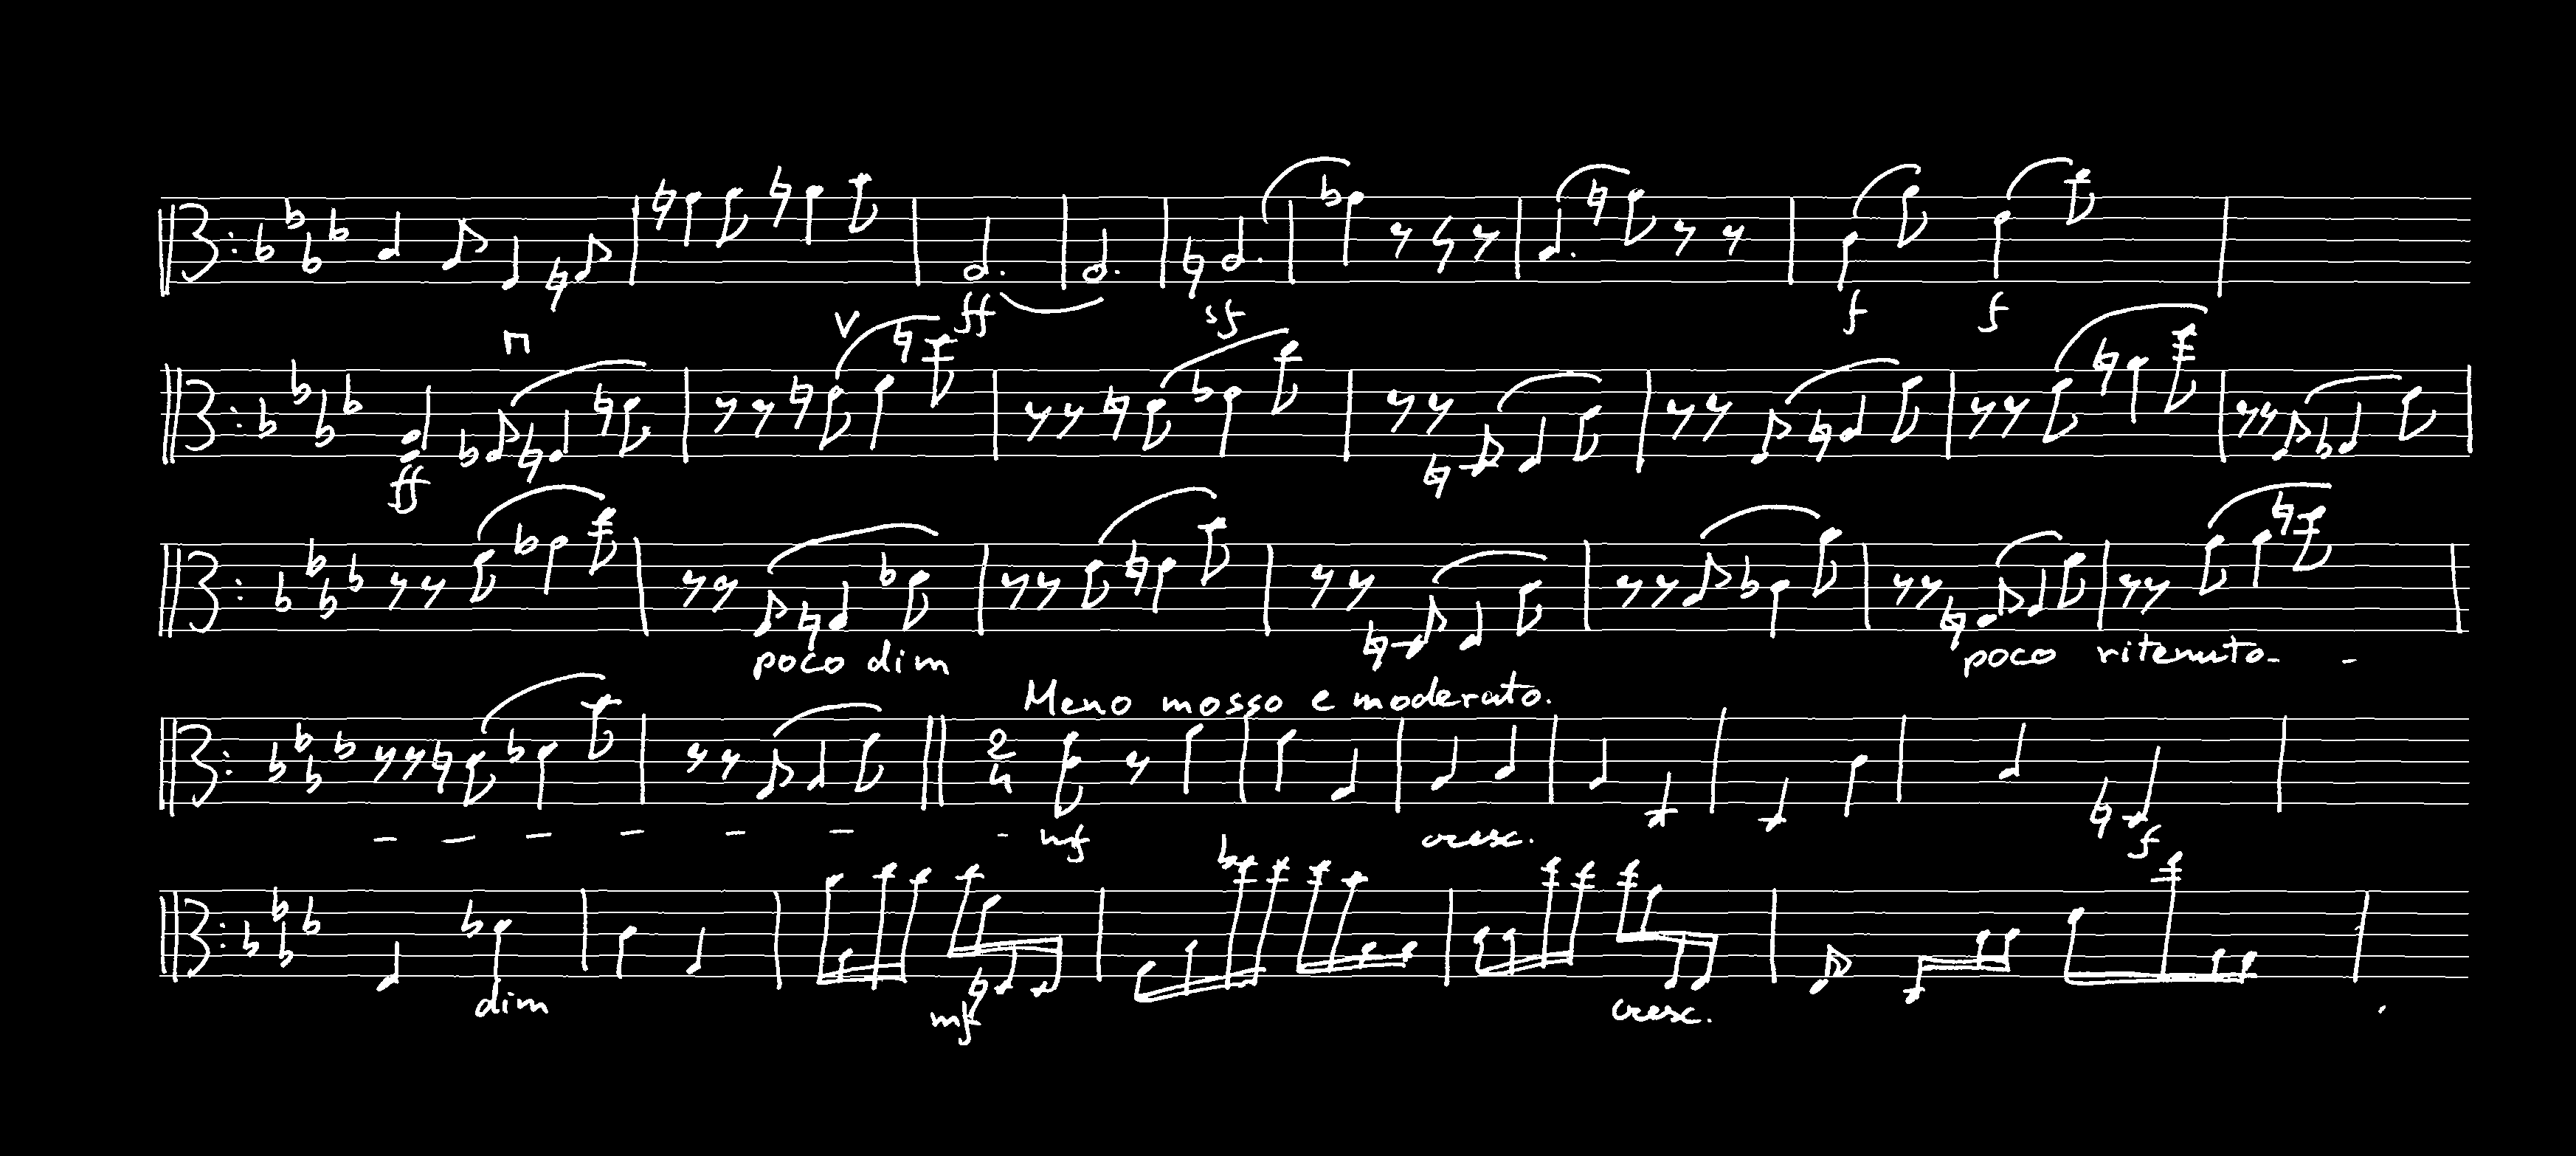 ff sf f f
ff
poco dim poco ritenuto - -
Meno mosso e moderato.
2/4
- - - - - - - mf cresc. f
dim mf cresc.